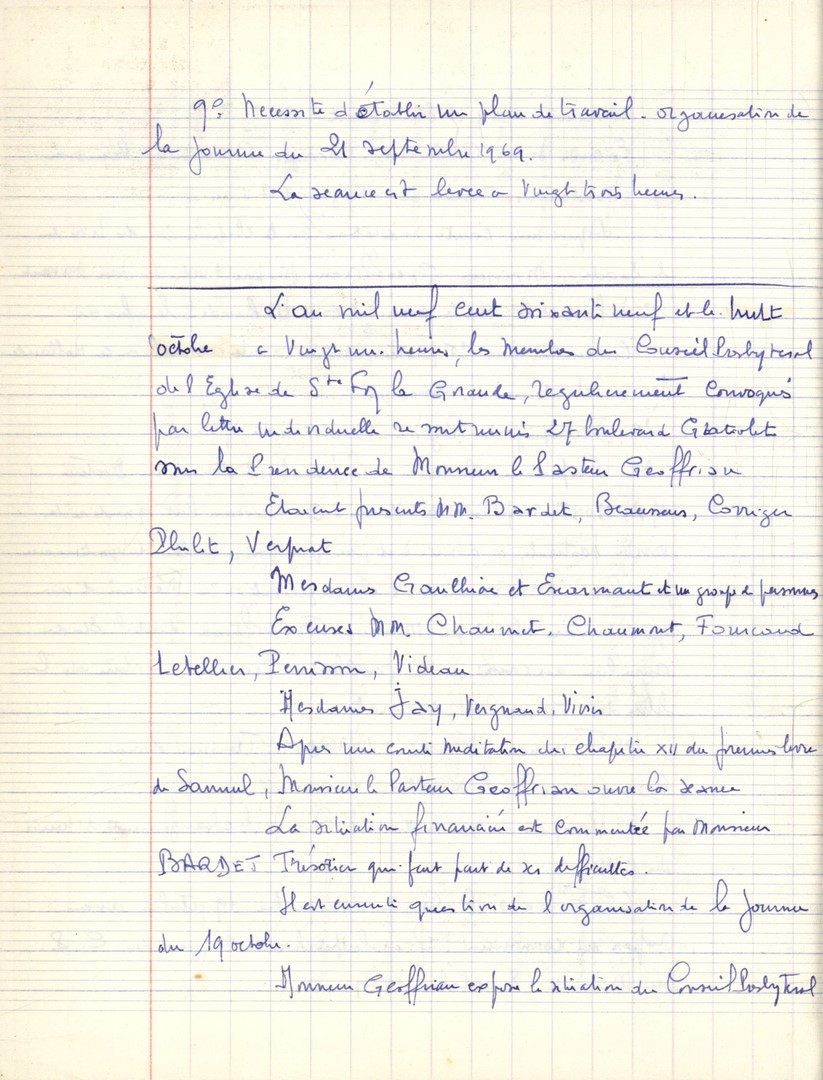 9°. Necessite d'établir un plan de travail. organisation de
la journee du 21 septembre 1969.
La seance est levee a vingt trois heures.
L'an mil neuf cent soixante neuf et le huit
octobre a vingt une heures, les membres du Conseil Presbyteral
de l'Eglise de Ste Foy la Grande, regulierement convoqués
par lettre individuelle se sont reunis 27 boulevard Gratiolet
sous la Presidence de Monsieur le Pasteur Geoffrian
Etaient presents MM. Bardet, Beausseus, Corriger
Phlit, Verprat
Mesdames Gaulhiae et Excarmant et un groupe de personnes
Excuses MM Chaumet, Chaumont, Fourcaud
Letellier, Penisson, Videau
Mesdames Jay, Vergnaud, Vivis
Apres une courte meditation du chapitre XII du premier livre
de Samuel, Monsieur le Pasteur Geoffrian ouvre la seance
La situation financière est commentée par Monsieur
BARDET Trésorier qui fait part de ses difficultes.
Il est ensuite question de l'organisation de la journee
du 19 octobre.
Monsieur Geoffrian expose la situation du Conseil Presbyteral